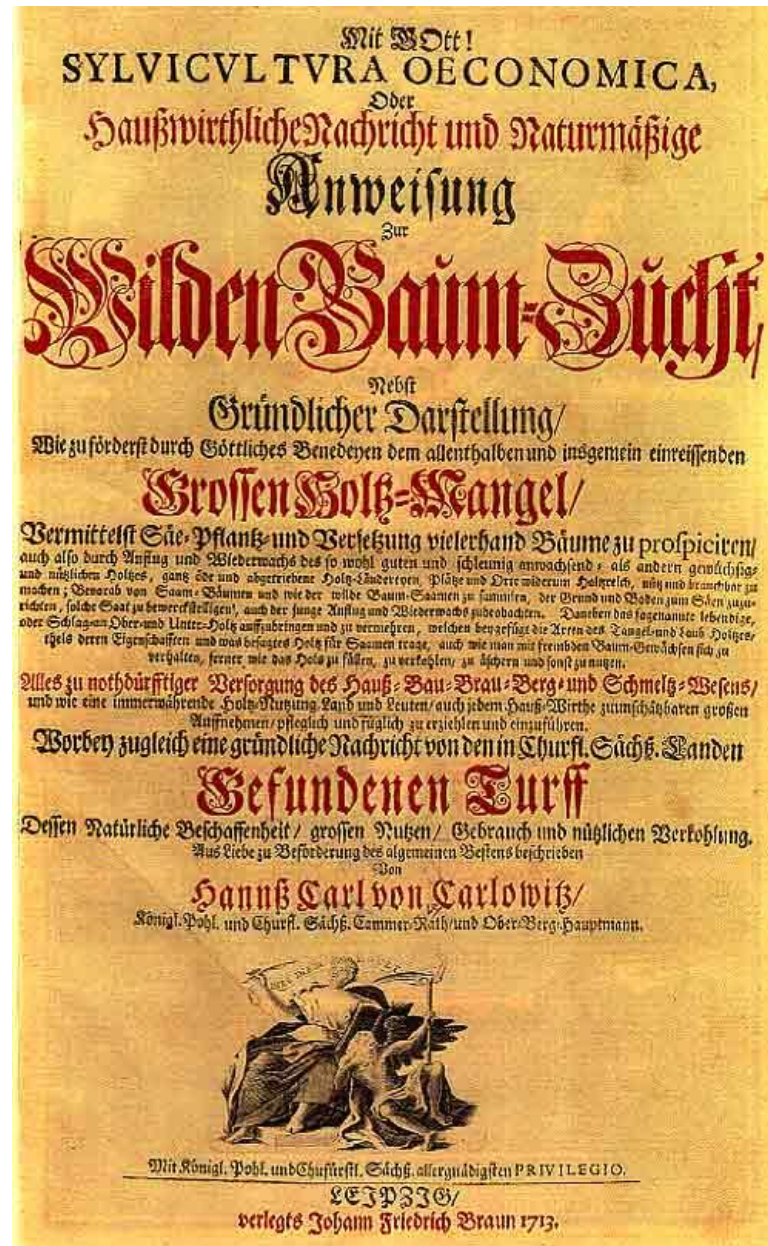 Mit GOtt!
SYLVICVLTVRA OECONOMICA,
Oder
Haußwirthliche Nachricht und Naturmäßige
Anweisung
Zur
Wilden Baum-Zucht,
Nebst
Gründlicher Darstellung/
Wie zu förderst durch Göttliches Benedeyen dem allenthalben und insgemein einreissenden
Grossen Holtz-Mangel/
Vermittelst Säe-Pflantz-und Versetzung vielerhand Bäume zu prospiciren/
auch also durch Anflug und Wiederwachs des so wohl guten und schleunig anwachsend, als andern gewüchsig-
und nützlichen Holtzes, gantz öde und abgetriebene Holtz-Ländereyen, Plätze und Orte widerum Holtzreich, nütz und brauchbar zu
machen; Bevorab von Saam-Bäumen und wie der wilde Baum-Saamen zu sammlen, der Grund und Boden zum Säen zuzu-
richten, solche Saat zu bewerckstelligen, auch der junge Anflug und Wiederwachs zu beobachten. Daneben das sogenannte lebendige,
oder Schlag-an Ober-und Unter-Holtz auffzubringen und zu vermehren, welchen beygefügt die Arten des Tangel-und Laub Holtzes,
theils deren Eigenschafften und was besagtes Holtz für Saamen trage, auch wie man mit frembden Baum-Gewächsen sich zu
verhalten, ferner wie das Holtz zu fällen, zu verkohlen, zu äschern und sonst zu nutzen.
Alles zu nothdürfftiger Versorgung des Hauß-Bau-Brau-Berg-und Schmeltz-Wesens/
und wie eine immerwährende Holtz-Nutzung Land und Leuten/ auch jedem Hauß-Wirthe zu unschätzbaren großen
Auffnehmen/ pfleglich und füglich zu erziehlen und einzuführen.
Worbey zugleich eine gründliche Nachricht von den in Churfl. Sächß. Landen
Gefundenen Turff
Dessen Natürliche Beschaffenheit/ grossen Nutzen/ Gebrauch und nützlichen Verkohlung.
Aus Liebe zu Beförderung des algemeinen Bestens beschrieben
Von
Hannß Carl von Carlowitz/
Königl. Pohl. und Churfl. Sächß. Cammer-Rath/ und Ober-Berg-Hauptmann.
Mit Königl. Pohl. und Chufürstl. Sächß. allergnädigsten PRIVILEGIO.
LEIPZIG/
verlegts Johann Friedrich Braun 1713.